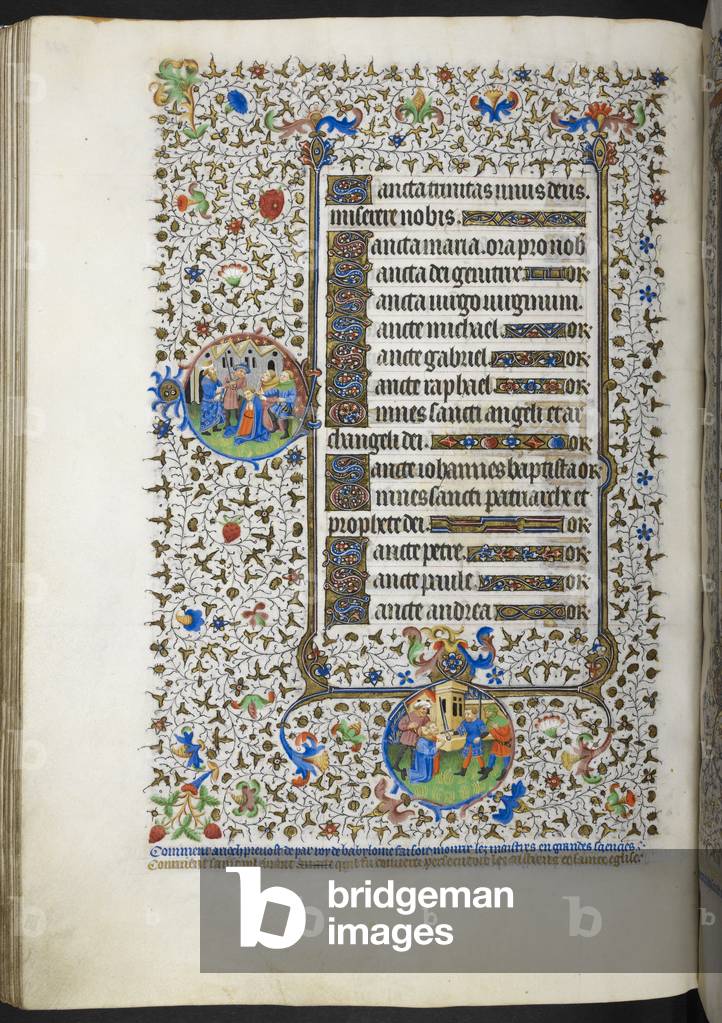 Sancta trinitas unus deus.
miserere nobis.
Sancta maria. ora pro nob
Sancta dei genitrix or
Sancta virgo virginum.
Sancte michael or
Sancte gabriel or
Sancte raphael or
Omnes sancti angeli et ar
changeli dei. or
Sancte iohannes baptista or
Omnes sancti patriarche et
prophete dei. or
Sancte petre. or
Sancte paule. or
Sancte andrea or
Comment prevost de par roy de babylonie faisoit mourir les martirs en grandes
Comment saint les
bridgeman
images